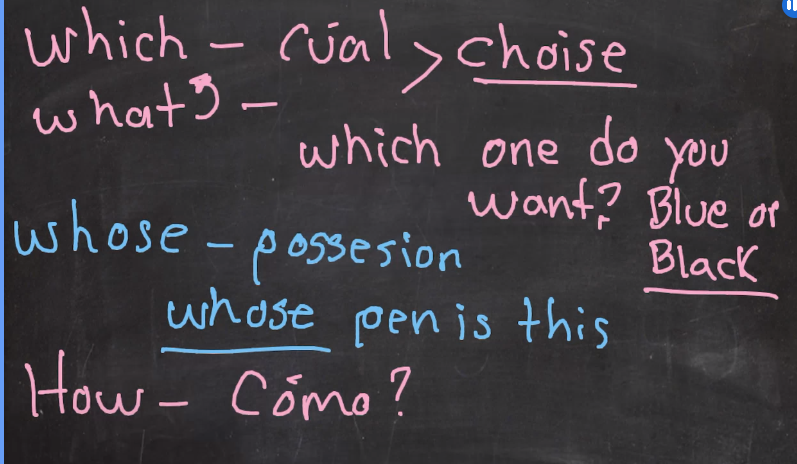 which - cúal > choise
what? -
which one do you
want? Blue or
Black
whose - possesion
whose pen is this
How - Cómo?